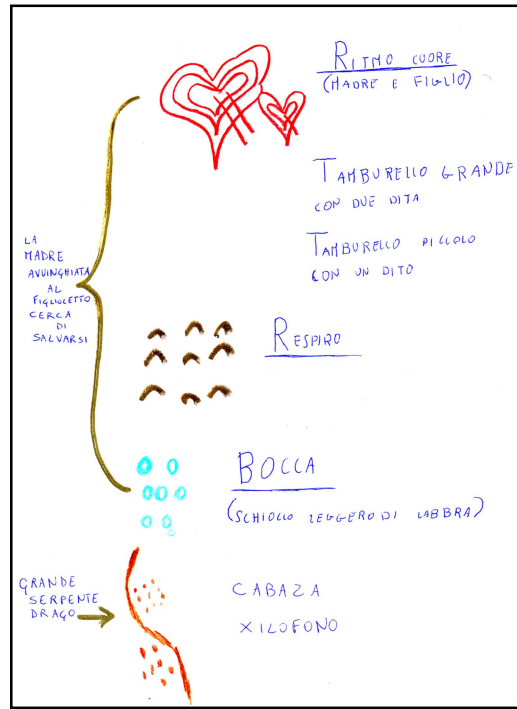 RITMO CUORE
(MADRE E FIGLIO)
TAMBURELLO GRANDE
CON DUE DITA
TAMBURELLO PICCOLO
CON UN DITO
LA
MADRE
AVVINGHIATA
AL
FIGLIOLETTO
CERCA
DI
SALVARSI
RESPIRO
BOCCA
(SCHIOCCO LEGGERO DI LABBRA)
GRANDE
SERPENTE
DRAGO
CABAZA
XILOFONO